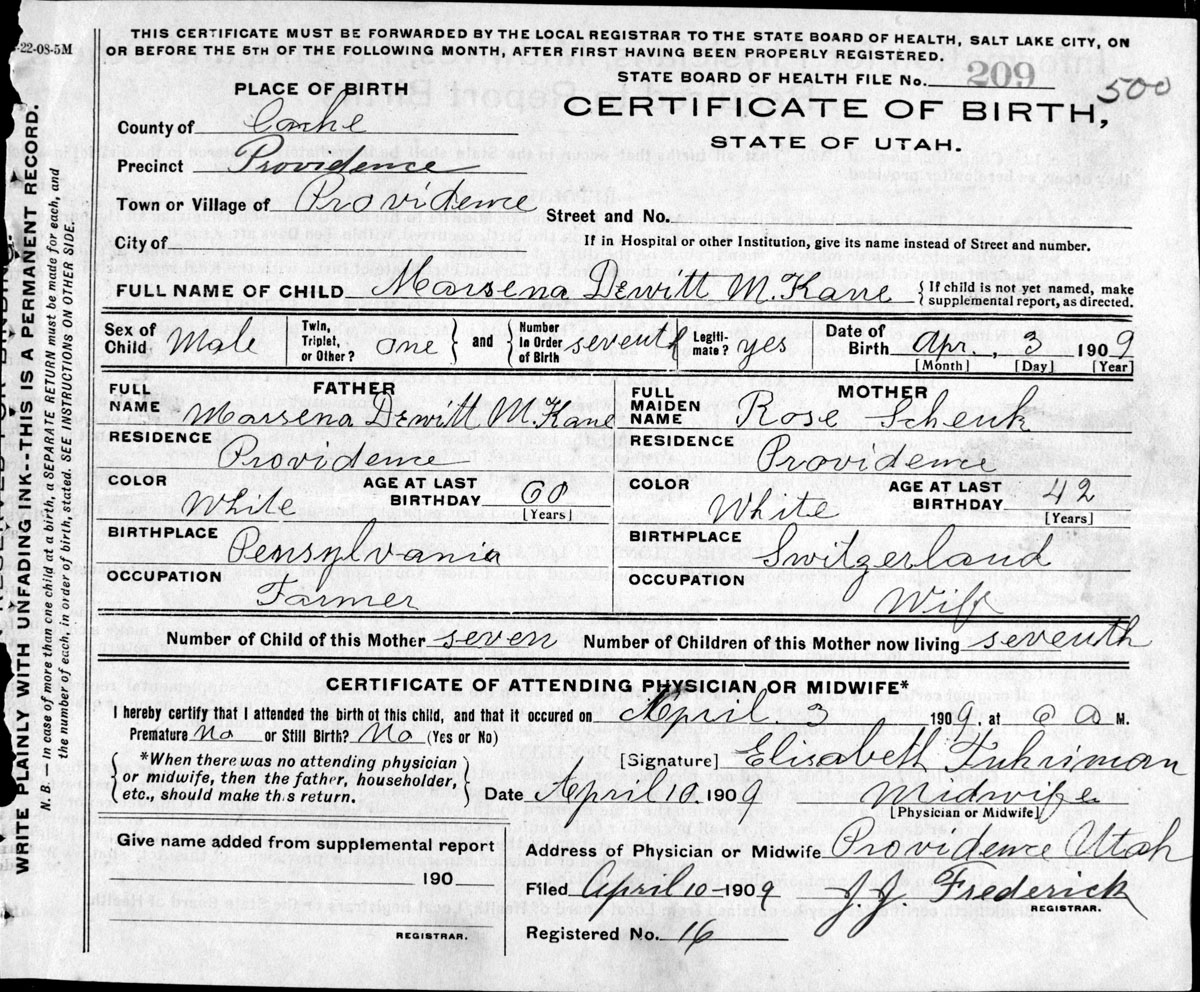 -22-08-5M
THIS CERTIFICATE MUST BE FORWARDED BY THE LOCAL REGISTRAR TO THE STATE BOARD OF HEALTH, SALT LAKE CITY, ON
OR BEFORE THE 5TH OF THE FOLLOWING MONTH, AFTER FIRST HAVING BEEN PROPERLY REGISTERED.
STATE BOARD OF HEALTH FILE No. 209
500
PLACE OF BIRTH
CERTIFICATE OF BIRTH,
STATE OF UTAH.
County of Cache
Precinct Providence
Town or Village of Providence Street and No.
City of If in Hospital or other Institution, give its name instead of Street and number.
FULL NAME OF CHILD Marsena Dewitt McKane { If child is not yet named, make
supplemental report, as directed.
Sex of Child Male Twin, Triplet, or Other? one } and { Number In Order of Birth seventh Legiti-mate? yes Date of Birth Apr. , 3 1909
[Month] [Day] [Year]
FATHER
FULL NAME Marsena Dewitt McKane
RESIDENCE
Providence
COLOR White AGE AT LAST BIRTHDAY 60
[Years]
BIRTHPLACE Pensylvania
OCCUPATION
Farmer
MOTHER
FULL MAIDEN NAME Rose Schenk
RESIDENCE
Providence
COLOR White AGE AT LAST BIRTHDAY 42
[Years]
BIRTHPLACE Switzerland
OCCUPATION
Wife
Number of Child of this Mother seven Number of Children of this Mother now living seventh
CERTIFICATE OF ATTENDING PHYSICIAN OR MIDWIFE*
I hereby certify that I attended the birth of this child, and that it occured on April 3 1909, at 6 a M.
Premature No or Still Birth? No (Yes or No)
[Signature] Elisabeth Fuhriman
*When there was no attending physician
or midwife, then the father, householder,
etc., should make this return.
Date April 10. 1909 Midwife
[Physician or Midwife]
Give name added from supplemental report
190
REGISTRAR.
Address of Physician or Midwife Providence Utah
Filed April 10-1909 J. J. Frederick
REGISTRAR.
Registered No. 16
WRITE PLAINLY WITH UNFADING INK---THIS IS A PERMANENT RECORD.
N. B. — In case of more than one child at a birth, a SEPARATE RETURN must be made for each, and
the number of each, in order of birth, stated. SEE INSTRUCTIONS ON OTHER SIDE.